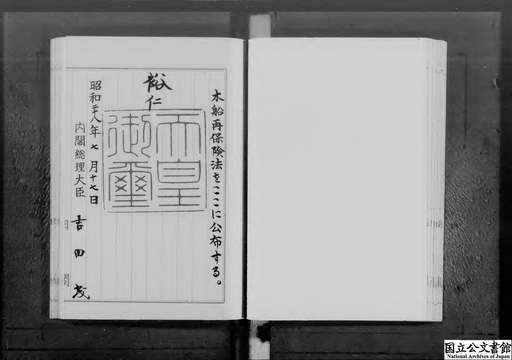 木船再保険法をここに公布する。
裕仁
天皇
御璽
昭和二十八年七月十七日
内閣総理大臣 吉田茂
国立公文書館
National Archives of Japan